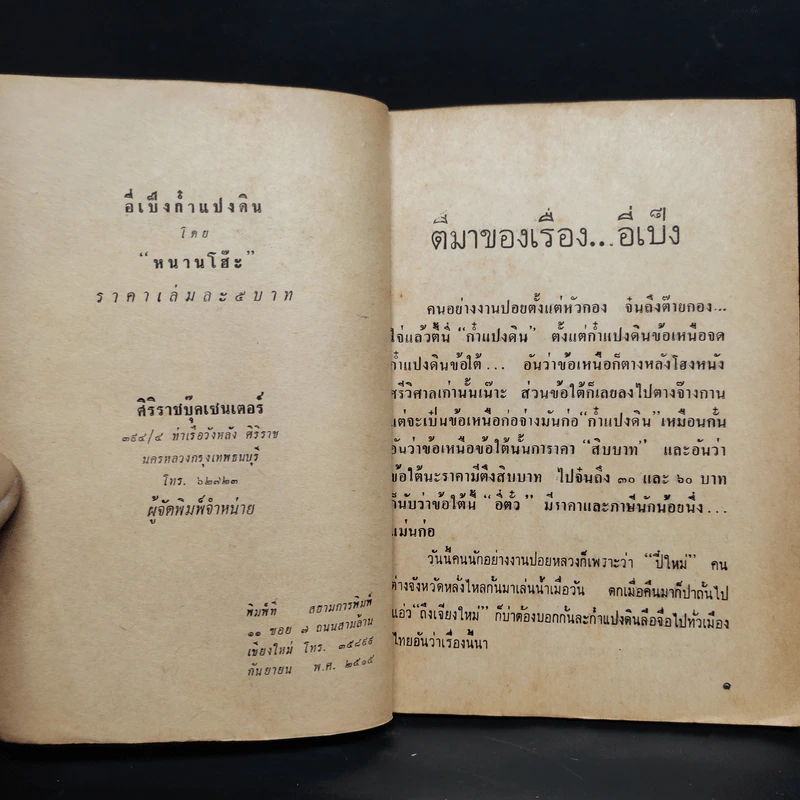 อี่เป็งก๋ำแปงดิน
โดย
“หนานโฮ๊ะ”
ราคาเล่มละ ๕ บาท
ศิริราชบุ๊คเซนเตอร์
๓๙๔/๕ ท่าเรือวังหลัง ศิริราช
นครหลวงกรุงเทพธนบุรี
โทร. ๖๒๗๒๓
ผู้จัดพิมพ์จำหน่าย
พิมพ์ที่ สยามการพิมพ์
๑๑ ซอย ๗ ถนนสามล้าน
เชียงใหม่ โทร. ๓๕๘๙๙
กันยายน พ.ศ. ๒๕๑๕
ตี้มาของเรื่อง...อี่เป็ง
คนอย่างงานปอยตั้งแต่หัวกอง จ๋นถึงต๊ายกอง...
ใจ่แล้วตี้นี้ “ก๋ำแปงดิน” ตั้งแต่ก๋ำแปงดินข้อเหนือจด
ก๋ำแปงดินข้อใต้... อันว่าข้อเหนือก็ตางหลังโฮงหนัง
ศรีวิศาลเก่านั้นเน๊าะ ส่วนข้อใต้ก็เลยลงไปตางจ๊างกาน
แต่จะเป็นข้อเหนือก่อจ่างมันก่อ “ก๋ำแปงดิน” เหมือนกั๋น
อันว่าข้อเหนือข้อใต้นั้นการาคา “สิบบาท” และอันว่า
ข้อใต้นะราคามีตึงสิบบาท ไปจ๋นถึง ๓๐ และ ๖๐ บาท
ก็นับว่าข้อใต้นี้ “อี่ตั๋ว” มีราคาและภาษีนักน้อยนึ่ง...
แม่นก่อ
วันนี้คนนักอย่างงานปอยหลวงก็เพราะว่า “ปี๋ใหม่” คน
ต่างจังหวัดหลั่งไหลกันมาเล่นน้ำเมื่อวัน ตกเมื่อคืนมาก็ปาถั่นไป
แอ่ว “ถึงเจียงใหม่” ก็บ่าต้องบอกกันละก๋ำแปงดินลือจื้อไปทั่วเมือง
ไทยอันว่าเรื่องนี้นา
๑